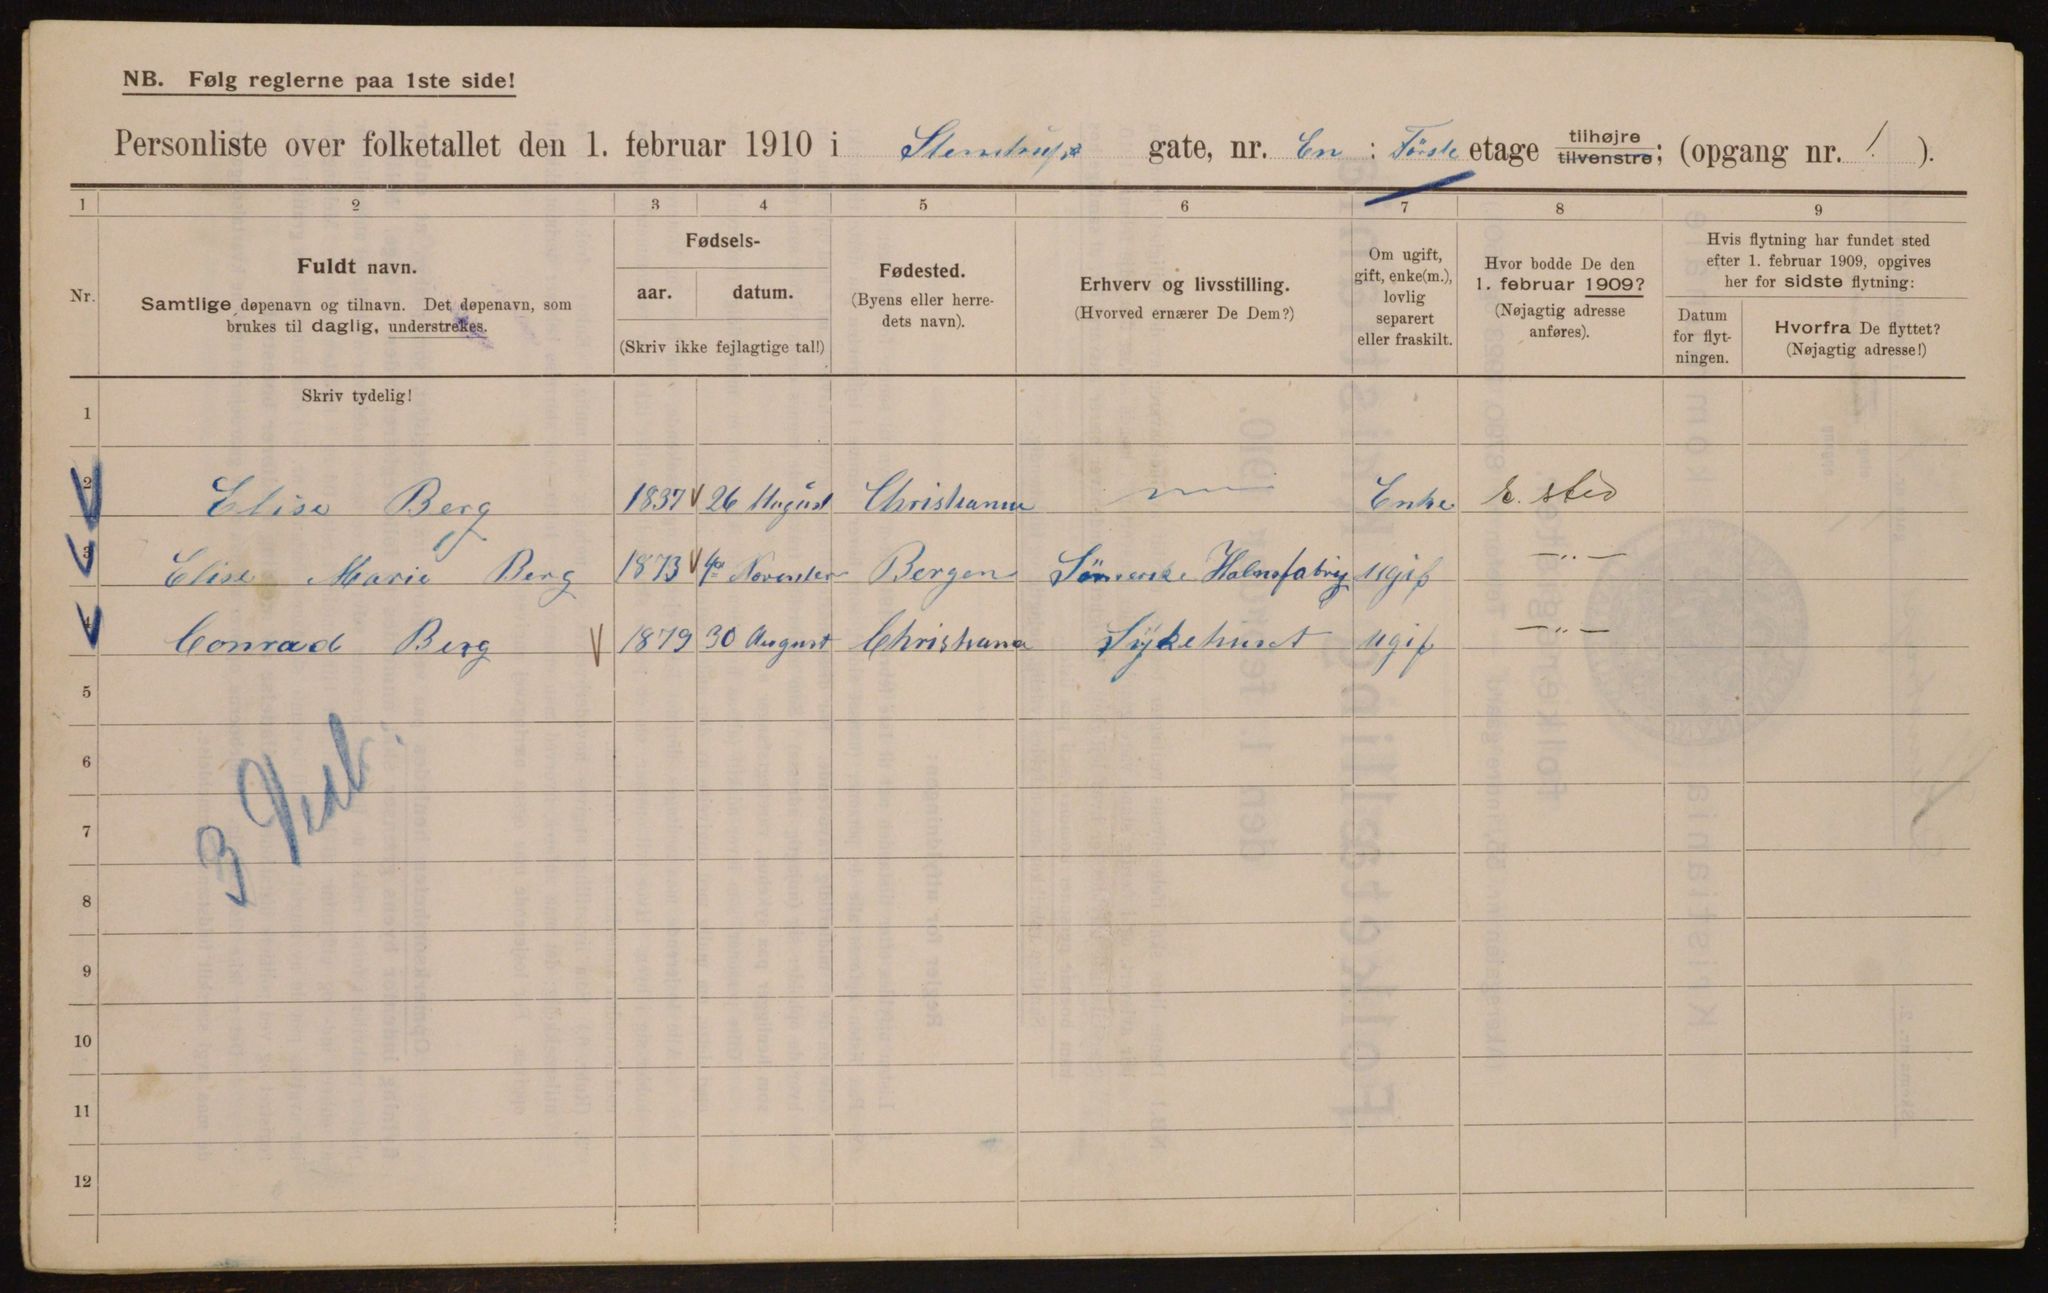 NB. Følg reglerne paa 1ste side!
Personliste over folketallet den 1. februar 1910 i Stenstrups gate, nr. En : Første etage tilhøjre tilvenstre; (opgang nr. 1 ).
1 2 3 4 5 6 7 8 9
Nr.
Fuldt navn.
Samtlige døpenavn og tilnavn. Det døpenavn, som
brukes til daglig, understrekes.
Fødsels-
aar. datum.
(Skriv ikke fejlagtige tal!)
Fødested.
(Byens eller herre-
dets navn).
Erhverv og livsstilling.
(Hvorved ernærer De Dem?)
Om ugift,
gift, enke(m.),
lovlig
separert
eller fraskilt.
Hvor bodde De den
1. februar 1909?
(Nøjagtig adresse
anføres).
Hvis flytning har fundet sted
efter 1. februar 1909, opgives
her for sidste flytning:
Datum
for flyt-
ningen.
Hvorfra De flyttet?
(Nøjagtig adresse!)
Skriv tydelig!
1
2 Elise Berg 1837 26 August Christiania Enke s. sted
3 Elise Marie Berg 1873 November Bergen Halmfabrig ugif -„-
4 Conrad Berg 1879 30 August Christiana Sykehuset ugif -„-
5
6
7
8
9
10
11
12